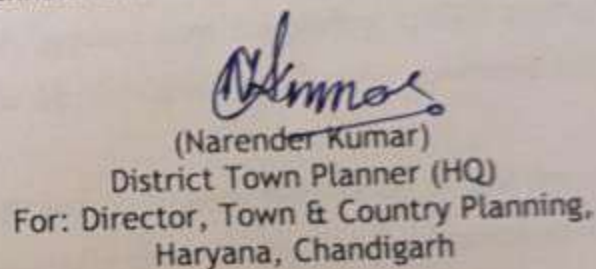 (Narender Kumar)
District Town Planner (HQ)
For: Director, Town & Country Planning,
Haryana, Chandigarh